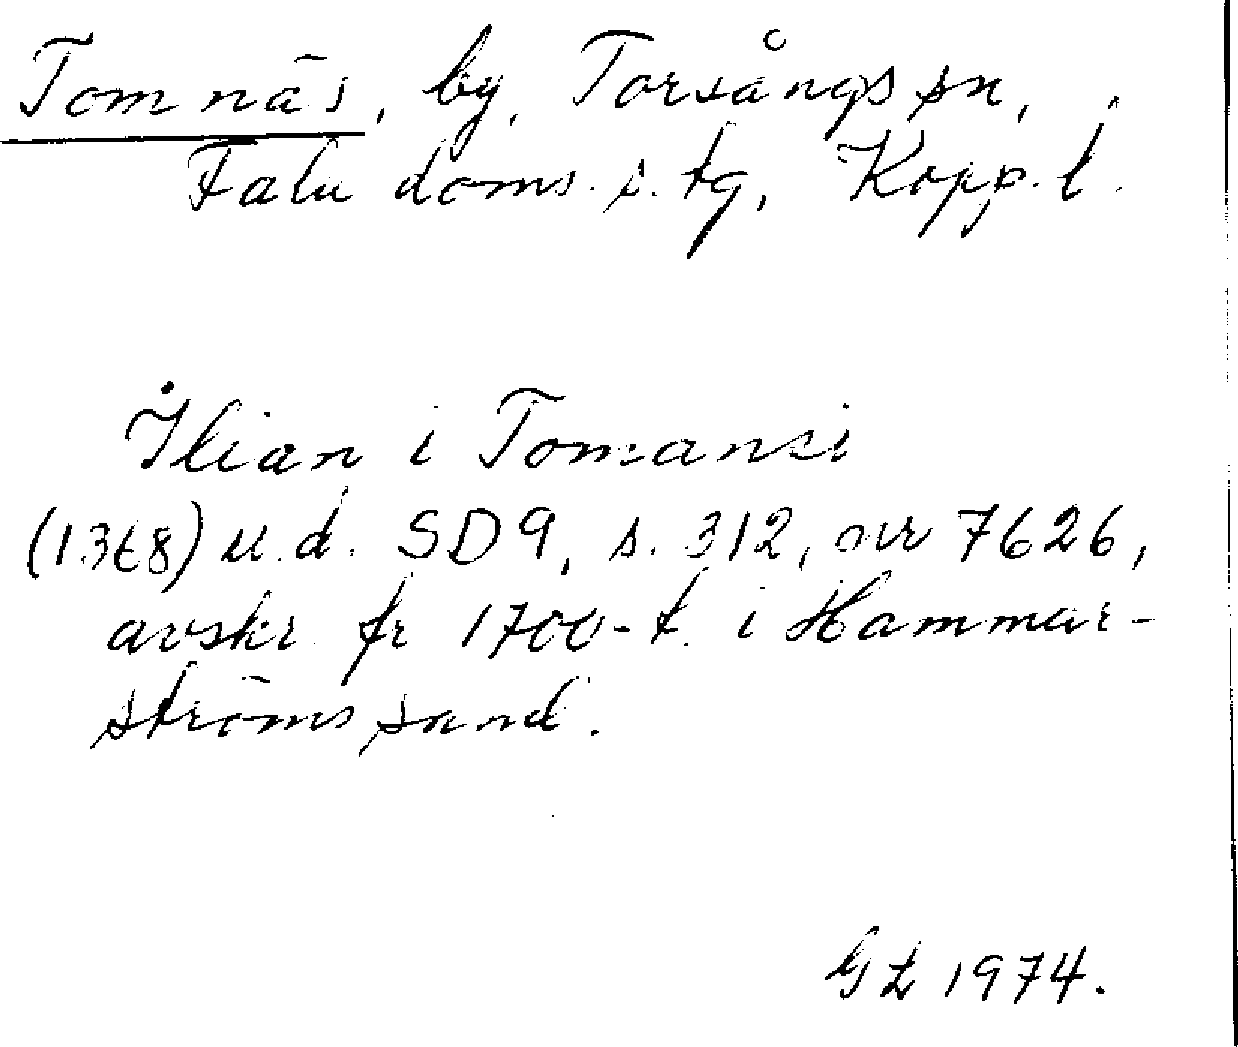 Tomnäs, by, Torsångs sn,
Falu doms. s. tg, Kopp. l.
Ilian i Tomansi
(1368) u.d. SD 9, s. 312, nr 7626,
avskr. fr 1700-t. i Hammar-
ströms saml.
1974.